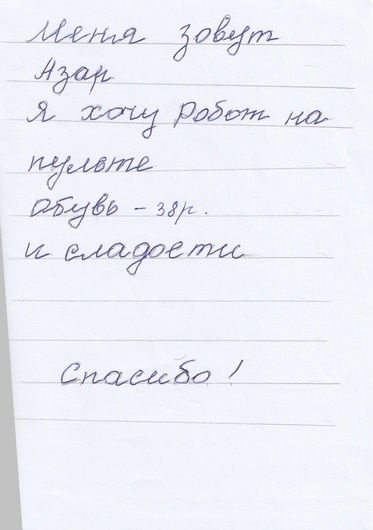 Меня зовут
Азар
Я хочу робот на
пульте
Обувь - 38р.
и сладости
Спасибо!